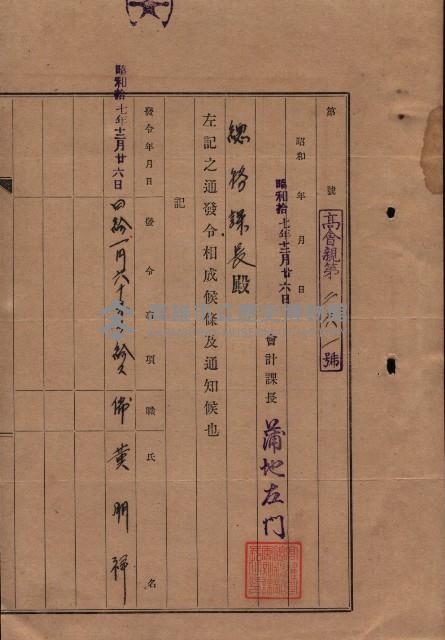 第　號
高會親第二六一號
昭和　年　月　日
昭和拾七年十二月廿六日
會計課長　蒲地左門
總務課長殿
左記之通發令相成候條及通知候也
記
發令年月日　發令事項　職氏名
昭和拾七年十二月廿六日　月六十　給　傭　黃明祥